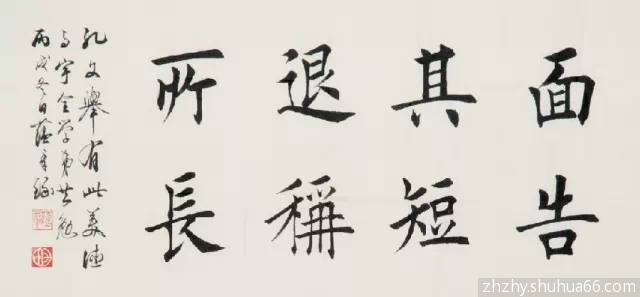 面告
其短
退稱
所長
孔文舉有此美德
与宇全學弟共勉
丙戌冬日
zhzhy.shuhua66.com